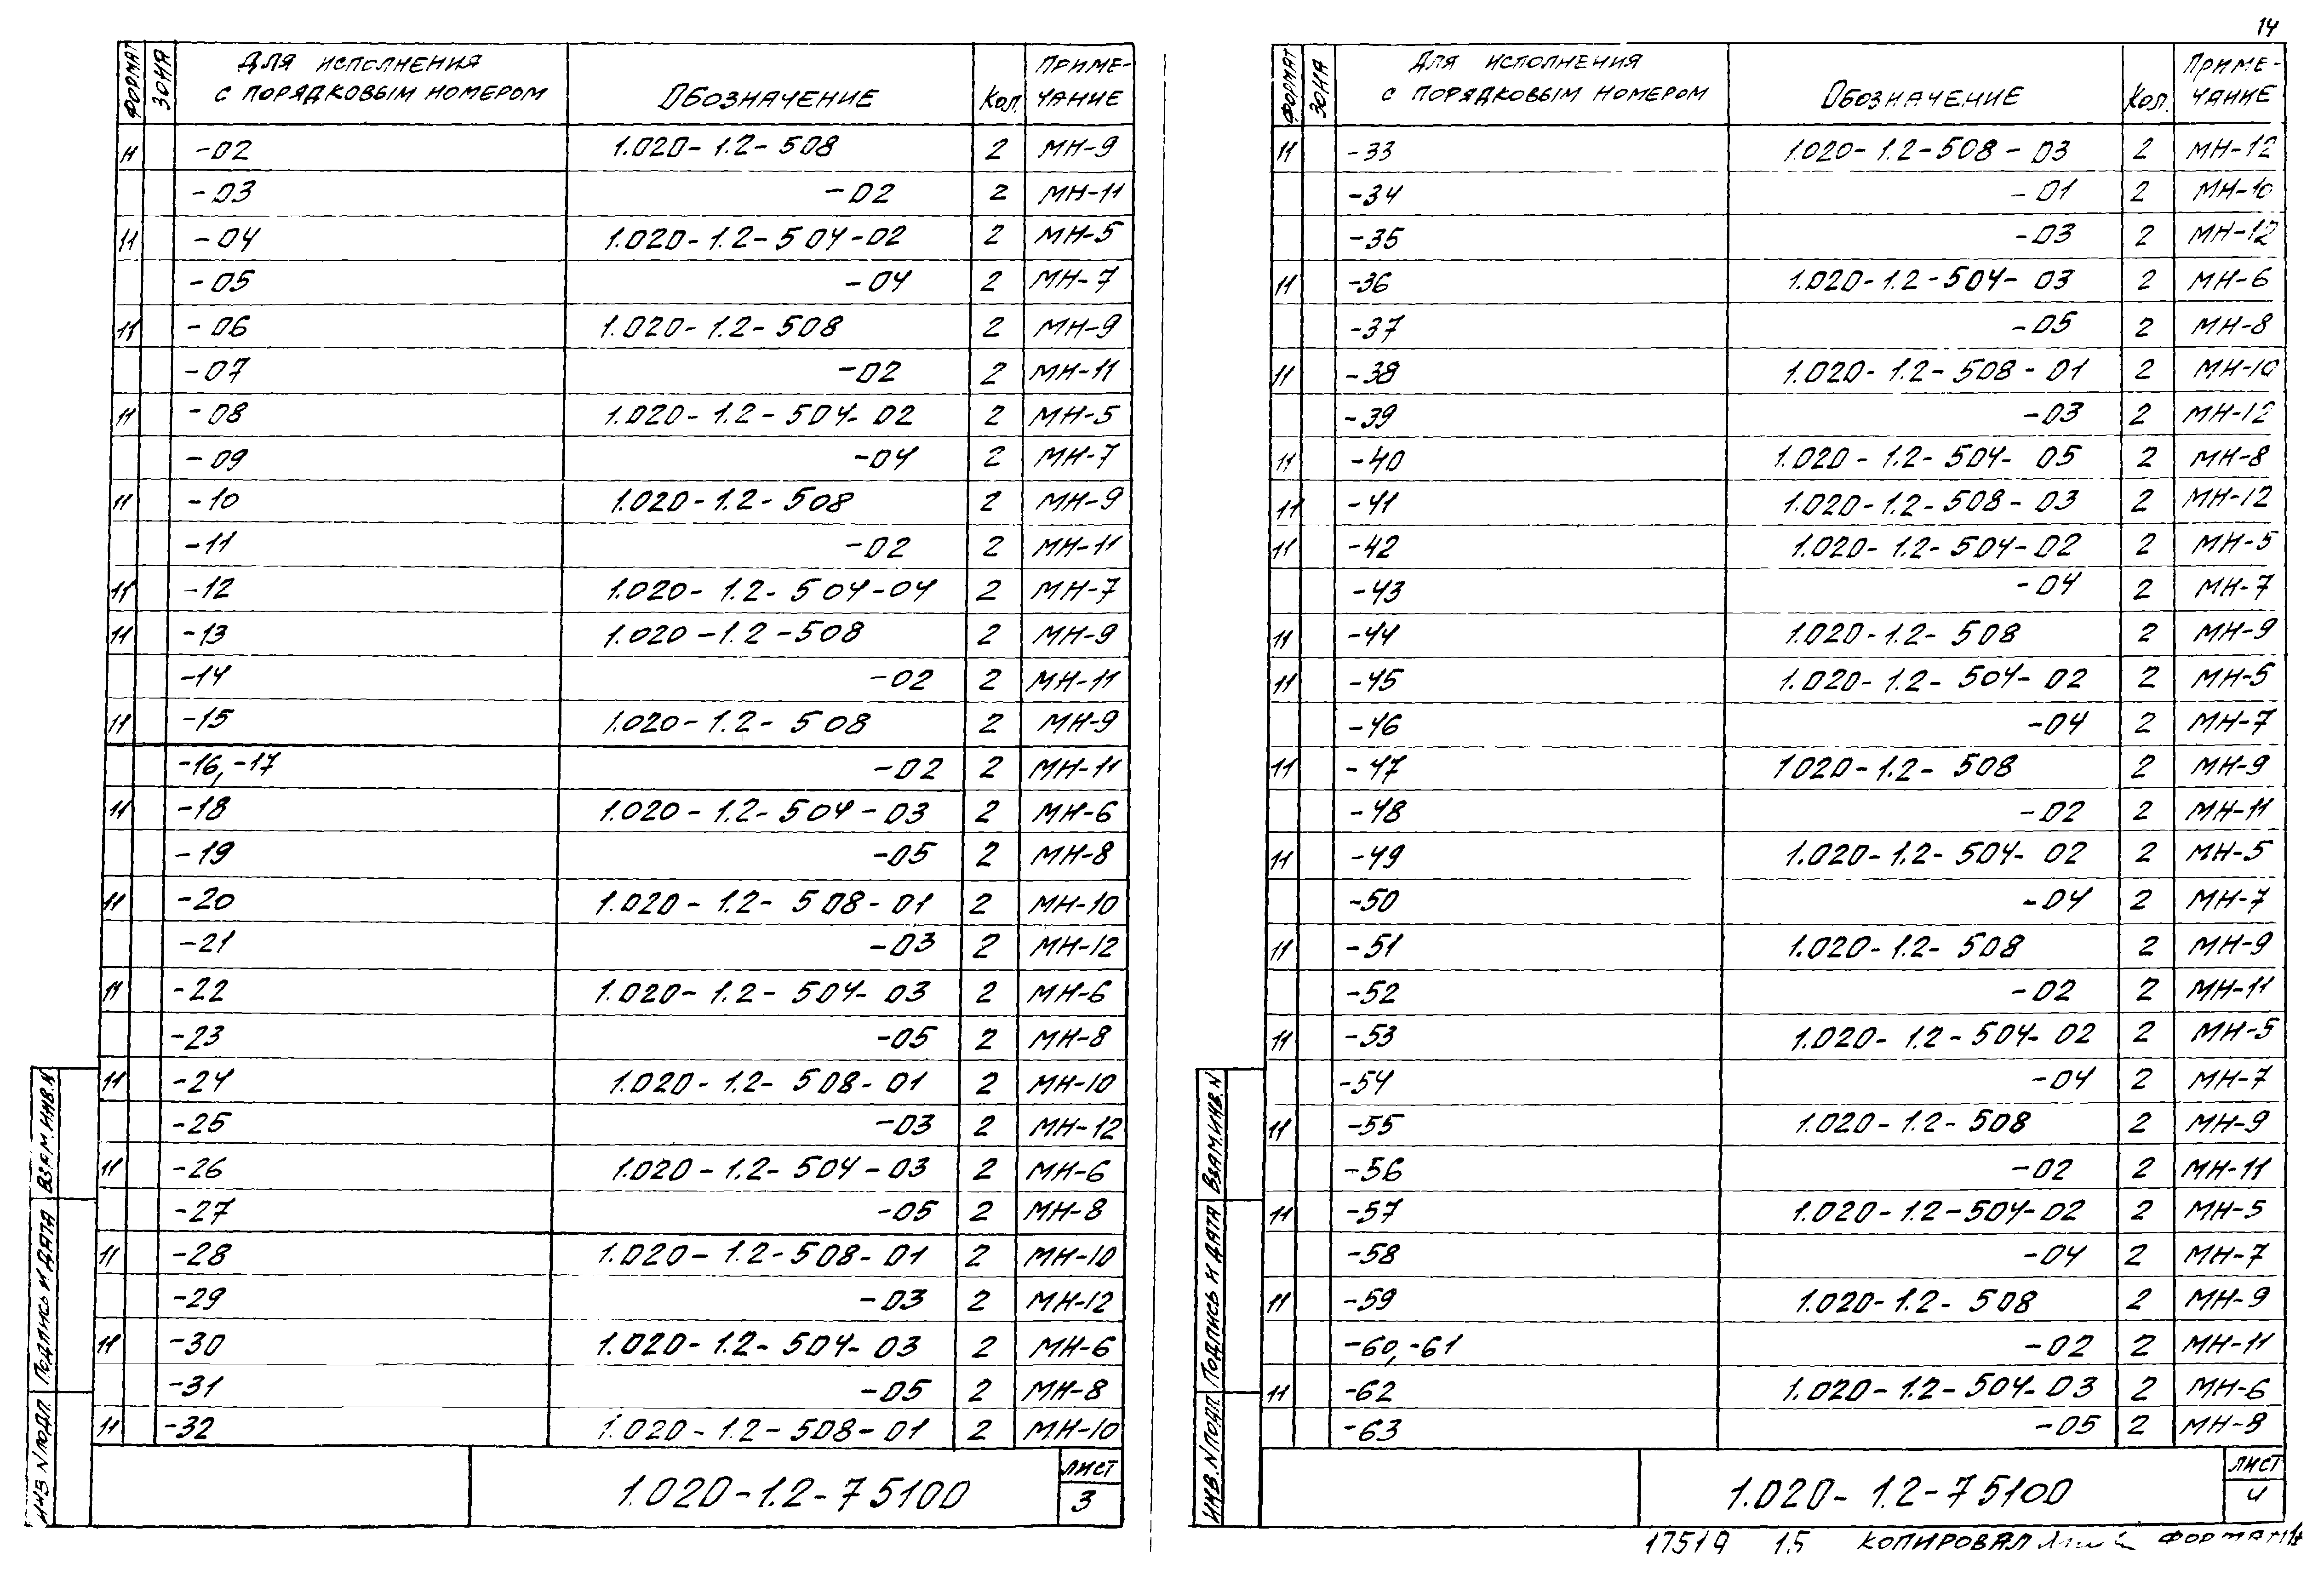 14
ФОРМАТ ЗОНА ДЛЯ ИСПОЛНЕНИЯ С ПОРЯДКОВЫМ НОМЕРОМ ОБОЗНАЧЕНИЕ КОЛ. ПРИМЕ-ЧАНИЕ
11 -02 1.020-1.2-508 2 МН-9
-03 -02 2 МН-11
11 -04 1.020-1.2-504-02 2 МН-5
-05 -04 2 МН-7
11 -06 1.020-1.2-508 2 МН-9
-07 -02 2 МН-11
11 -08 1.020-1.2-504-02 2 МН-5
-09 -04 2 МН-7
11 -10 1.020-1.2-508 2 МН-9
-11 -02 2 МН-11
11 -12 1.020-1.2-504-04 2 МН-7
11 -13 1.020-1.2-508 2 МН-9
-14 -02 2 МН-11
11 -15 1.020-1.2-508 2 МН-9
-16,-17 -02 2 МН-11
11 -18 1.020-1.2-504-03 2 МН-6
-19 -05 2 МН-8
11 -20 1.020-1.2-508-01 2 МН-10
-21 -03 2 МН-12
11 -22 1.020-1.2-504-03 2 МН-6
-23 -05 2 МН-8
11 -24 1.020-1.2-508-01 2 МН-10
-25 -03 2 МН-12
11 -26 1.020-1.2-504-03 2 МН-6
-27 -05 2 МН-8
11 -28 1.020-1.2-508-01 2 МН-10
-29 -03 2 МН-12
11 -30 1.020-1.2-504-03 2 МН-6
-31 -05 2 МН-8
11 -32 1.020-1.2-508-01 2 МН-10
ИНВ N ПОДЛ. ПОДПИСЬ И ДАТА ВЗАМ.ИНВ.N
1.020-1.2-7 5100
ЛИСТ
3
ФОРМАТ ЗОНА ДЛЯ ИСПОЛНЕНИЯ С ПОРЯДКОВЫМ НОМЕРОМ ОБОЗНАЧЕНИЕ КОЛ. ПРИМЕ-ЧАНИЕ
11 -33 1.020-1.2-508-03 2 МН-12
-34 -01 2 МН-10
-35 -03 2 МН-12
11 -36 1.020-1.2-504-03 2 МН-6
-37 -05 2 МН-8
11 -38 1.020-1.2-508-01 2 МН-10
-39 -03 2 МН-12
11 -40 1.020-1.2-504-05 2 МН-8
11 -41 1.020-1.2-508-03 2 МН-12
11 -42 1.020-1.2-504-02 2 МН-5
-43 -04 2 МН-7
11 -44 1.020-1.2-508 2 МН-9
11 -45 1.020-1.2-504-02 2 МН-5
-46 -04 2 МН-7
11 -47 1020-1.2-508 2 МН-9
-48 -02 2 МН-11
11 -49 1.020-1.2-504-02 2 МН-5
-50 -04 2 МН-7
11 -51 1.020-1.2-508 2 МН-9
-52 -02 2 МН-11
11 -53 1.020-1.2-504-02 2 МН-5
-54 -04 2 МН-7
11 -55 1.020-1.2-508 2 МН-9
-56 -02 2 МН-11
11 -57 1.020-1.2-504-02 2 МН-5
-58 -04 2 МН-7
11 -59 1.020-1.2-508 2 МН-9
-60,-61 -02 2 МН-11
11 -62 1.020-1.2-504-03 2 МН-6
-63 -05 2 МН-8
ИНВ.N ПОДЛ. ПОДПИСЬ И ДАТА ВЗАМ.ИНВ.N
1.020-1.2-7 5100
ЛИСТ
4
17519 15 КОПИРОВАЛ ФОРМАТ